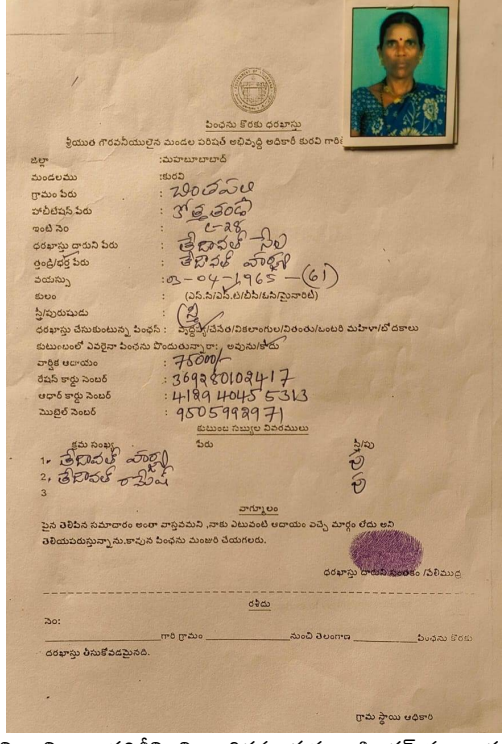 పింఛను కొరకు ధరఖాస్తు
శ్రీయుత గౌరవనీయులైన మండల పరిషత్ అభివృద్ధి అధికారి కురవి గారికి
జిల్లా :మహబూబాబాద్
మండలము :కురవి
గ్రామం పేరు : చింతపల్లి
హాబిటేషన్ పేరు : కొత్త తండా
ఇంటి నెం :
ధరఖాస్తు దారుని పేరు : తేజావత్ సేల
తండ్రి/భర్త పేరు : తేజావత్ హర్యా
వయస్సు : 03-04-1965 - (61)
కులం : (ఎస్.సి/ఎస్.టి/బీసీ/ఓసి/మైనారిటి)
స్త్రీ/పురుషుడు : స్త్రీ
ధరఖాస్తు చేసుకుంటున్న పింఛన్ : వృద్ధాప్య/చేనేత/వికలాంగుల/వితంతు/ఒంటరి మహిళా/బోదకాలు
కుటుంబంలో ఎవరైనా పింఛను పొందుతున్నారా: అవును/కాదు
వార్షిక ఆదాయం : 75000/-
రేషన్ కార్డు నెంబర్ : 369280102417
ఆధార్ కార్డు నెంబర్ : 4189 4045 5313
మొబైల్ నెంబర్ : 9505992971
కుటుంబ సభ్యుల వివరములు
క్రమ సంఖ్య పేరు స్త్రీ/పు
1. తేజావత్ హర్యా పు
2. తేజావత్ రామేష్ పు
3
వాగ్మూలం
పైన తెలిపిన సమాచారం అంతా వాస్తవమని ,నాకు ఎటువంటి ఆదాయం వచ్చే మార్గం లేదు అని
తెలియపరుస్తున్నాను.కావున పింఛను మంజూరి చేయగలరు.
ధరఖాస్తు దారుని సంతకం /వేలిముద్ర
రశీదు
నెం:
గారి గ్రామం నుంచి తెలంగాణ పింఛను కొరకు
దరఖాస్తు తీసుకోవడమైనది.
గ్రామ స్థాయి అధికారి